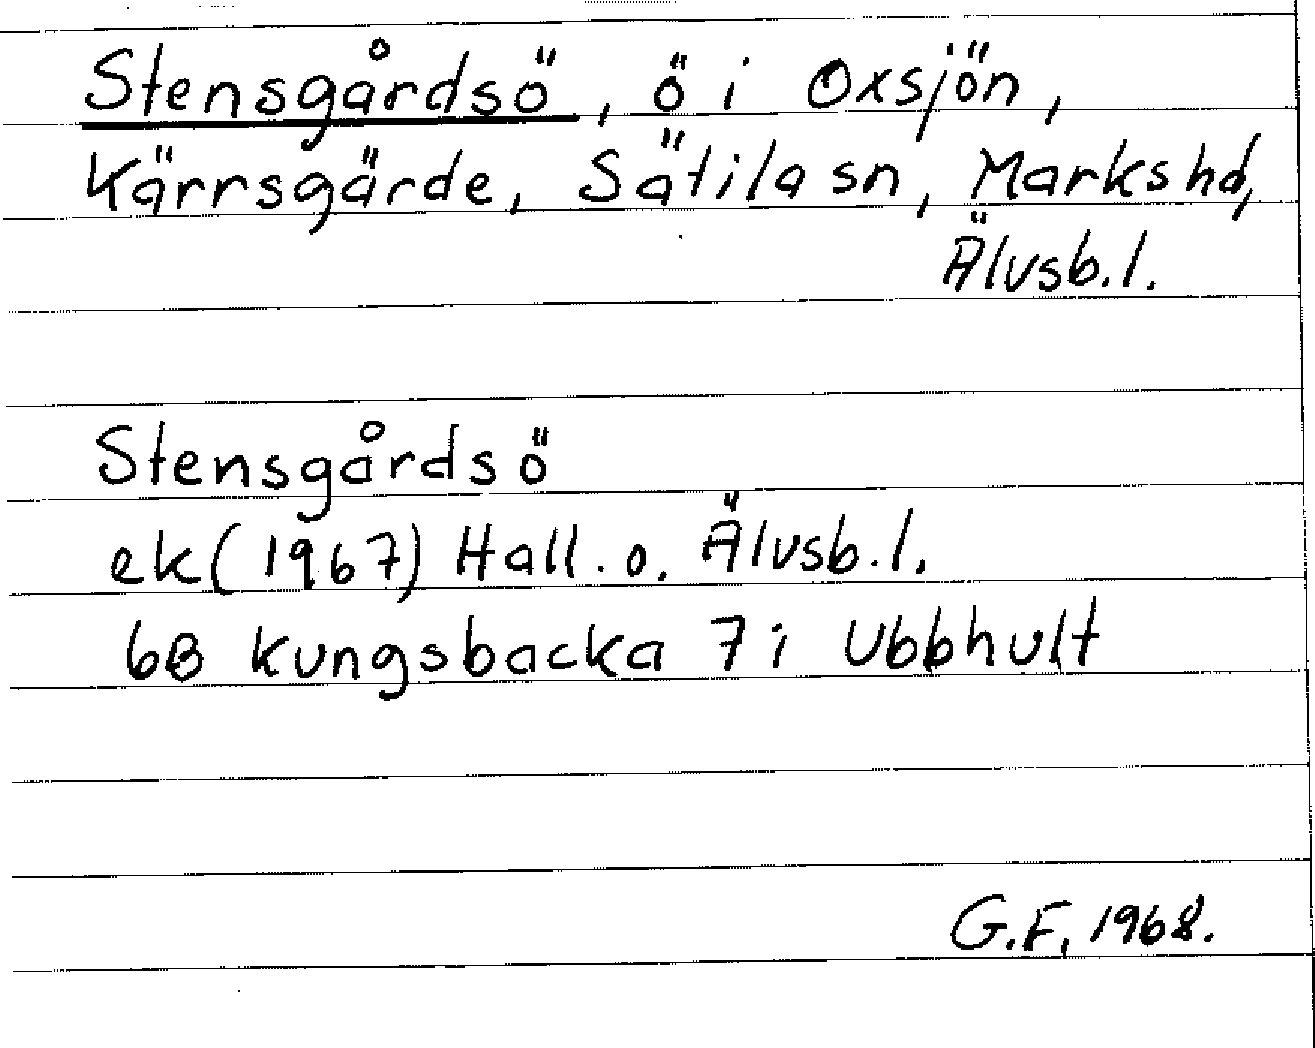 Stensgårdsö, ö i Oxsjön,
Kärrsgärde, Sätila sn, Marks hd,
Älvsb. l.
Stensgårdsö
ek (1967) Hall. o. Älvsb. l.
6B Kungsbacka 7i Ubbhult
G.F. 1968.